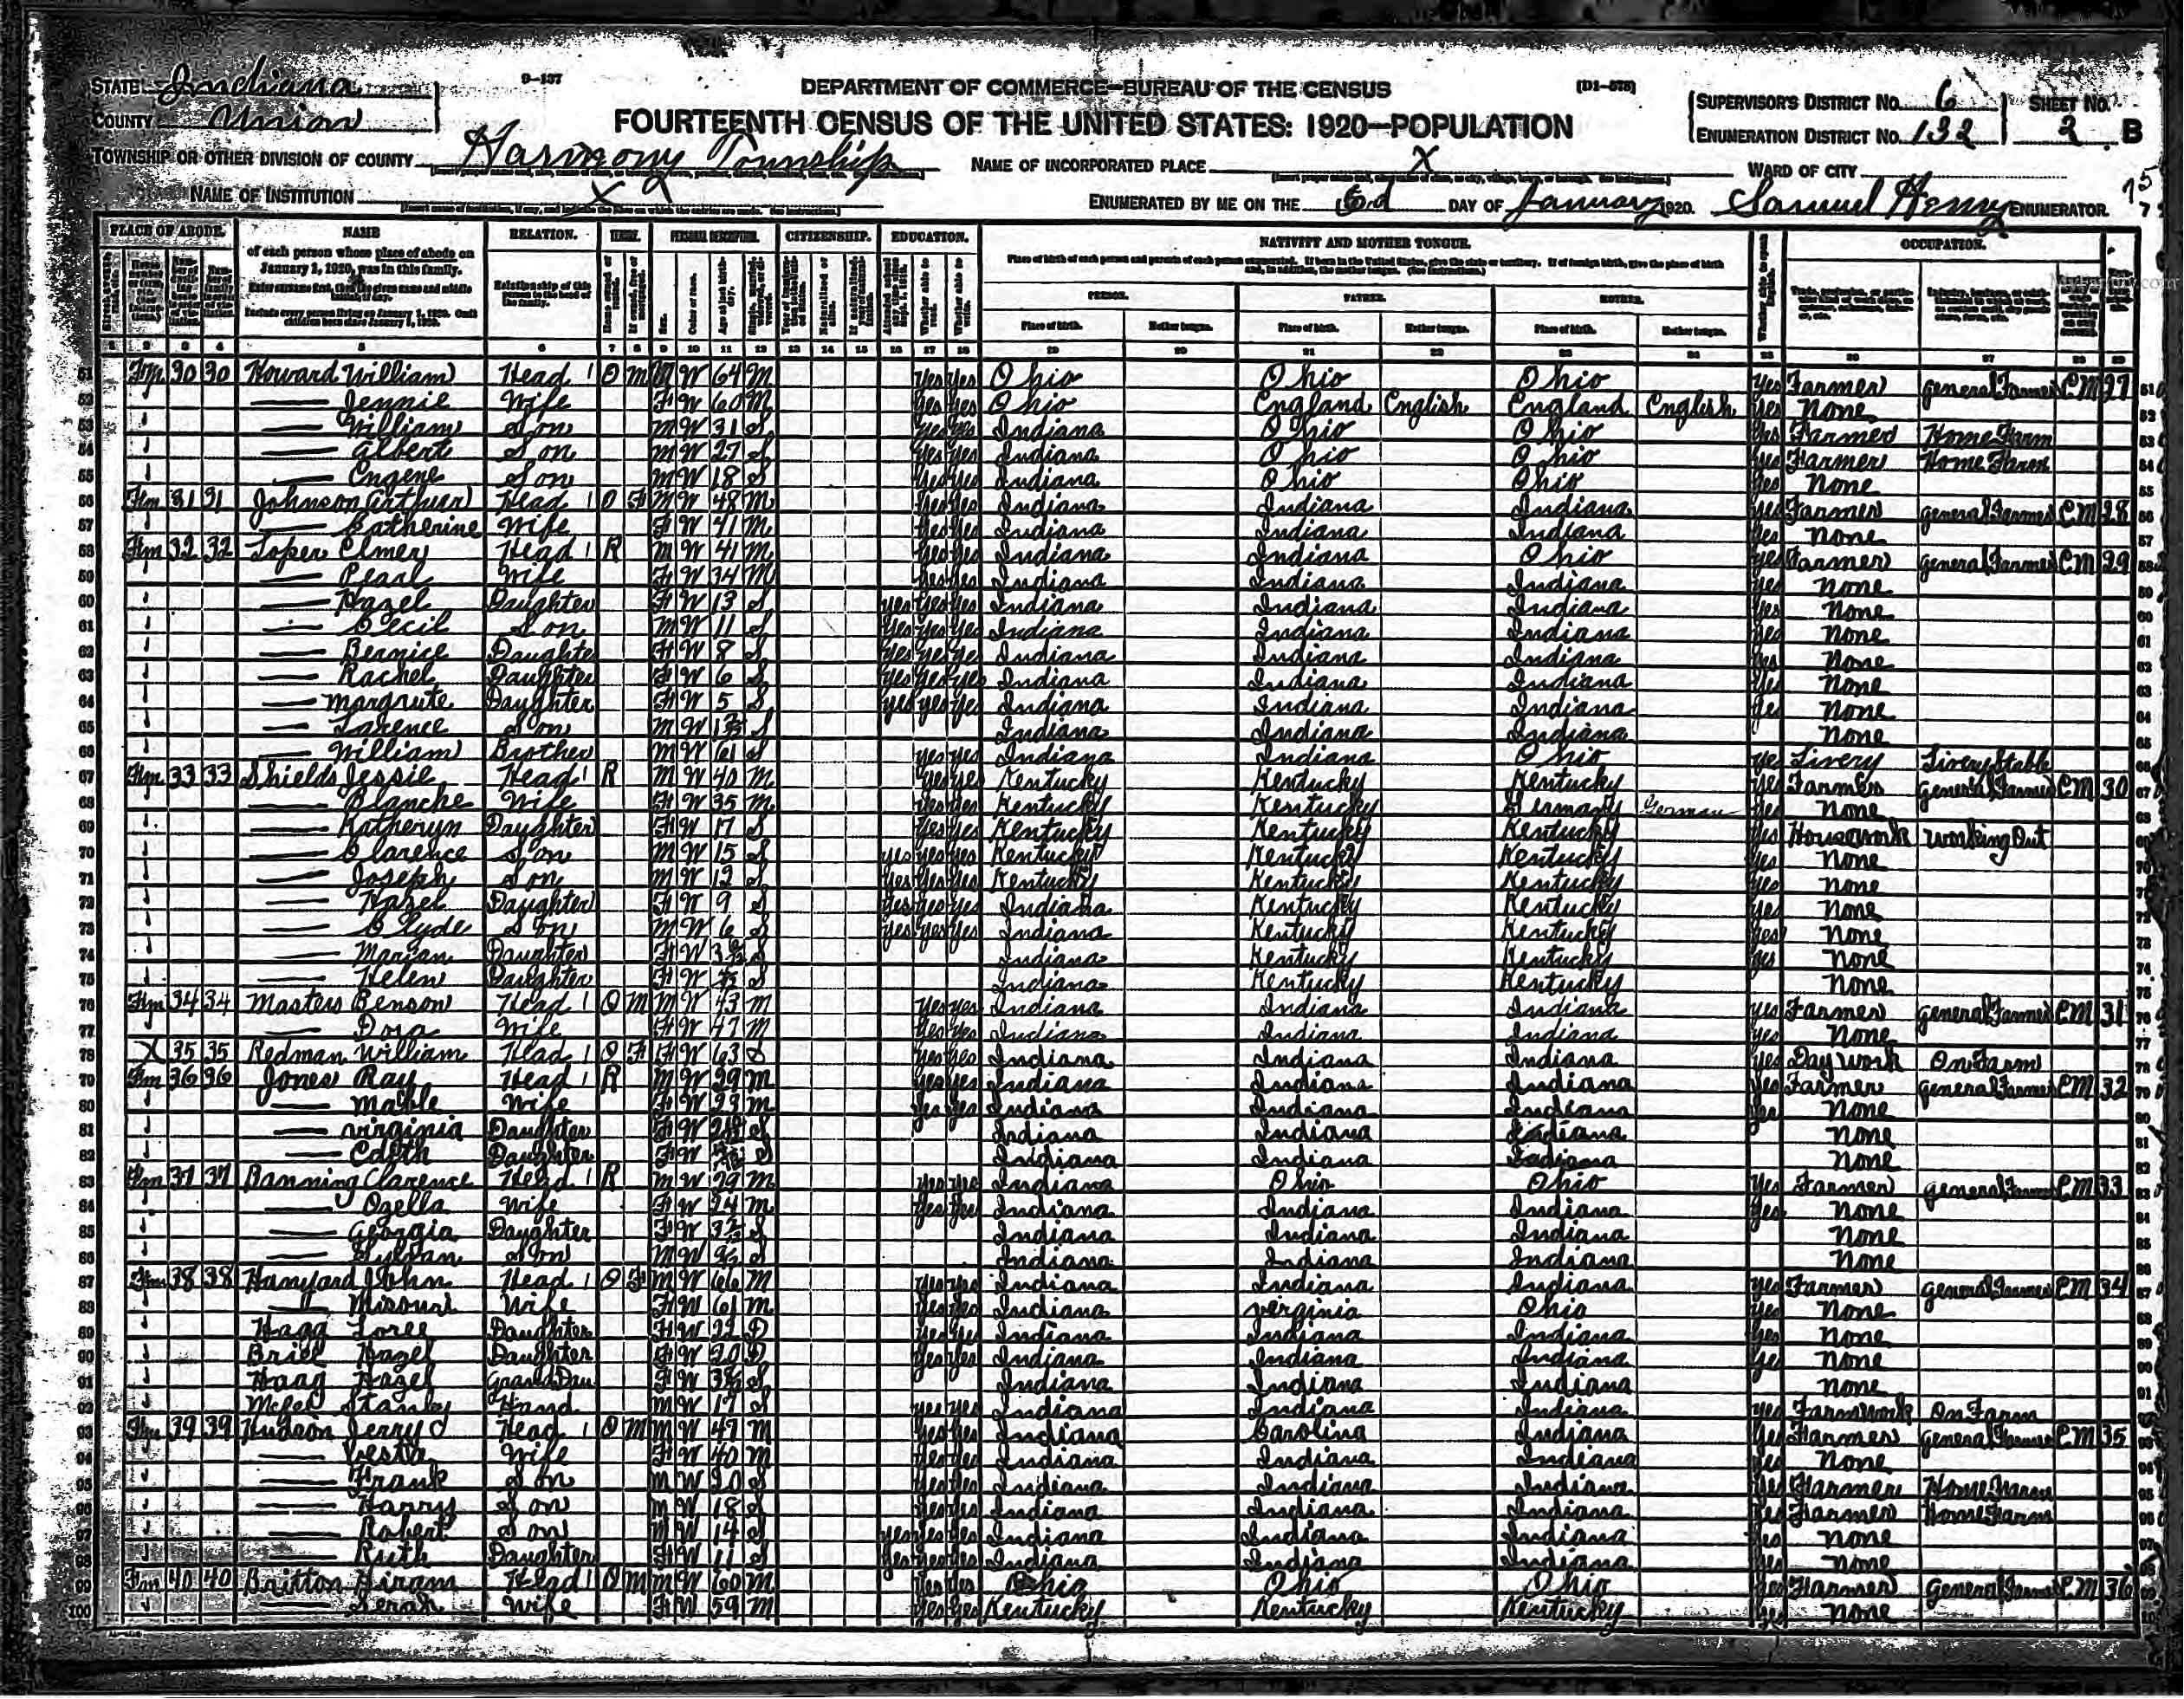 STATE Indiana
9-137
DEPARTMENT OF COMMERCE—BUREAU OF THE CENSUS
[D1-578]
SUPERVISOR'S DISTRICT No. 6
SHEET No.
COUNTY Union
FOURTEENTH CENSUS OF THE UNITED STATES: 1920—POPULATION
ENUMERATION DISTRICT No. 132
2 B
TOWNSHIP OR OTHER DIVISION OF COUNTY Harmony Township
NAME OF INCORPORATED PLACE X
WARD OF CITY
NAME OF INSTITUTION X
ENUMERATED BY ME ON THE DAY OF January, 1920. Samuel Henry ENUMERATOR
PLACE OF ABODE. NAME RELATION. PERSONAL DESCRIPTION. CITIZENSHIP. EDUCATION. NATIVITY AND MOTHER TONGUE. OCCUPATION.
of each person whose place of abode on January 1, 1920, was in this family.
Enter surname first, then the given name and middle initial, if any.
Include every person living on January 1, 1920. Omit children born since January 1, 1920.
Relationship of this person to the head of the family.
Place of birth of each person and parents of each person enumerated. If born in the United States, give the state or territory. If of foreign birth, give the place of birth and, in addition, the mother tongue. (See Instructions.)
PERSON. FATHER. MOTHER.
Place of birth. Mother tongue. Place of birth. Mother tongue. Place of birth. Mother tongue.
51 Fm 30 30 Howard William Head 1 O M M W 64 M Yes Yes Ohio Ohio Ohio Yes Farmer General Farmer EM 27
52 — Jennie Wife F W 60 M Yes Yes Ohio England English England English Yes None
53 — William Son M W 31 S Yes Yes Indiana Ohio Ohio Yes Farmer Home Farm
54 — Albert Son M W 27 S Yes Yes Indiana Ohio Ohio Yes Farmer Home Farm
55 — Eugene Son M W 18 S Yes Yes Indiana Ohio Ohio Yes None
56 Fm 31 31 Johnson Arthur Head 1 O F M W 48 M Yes Yes Indiana Indiana Indiana Yes Farmer General Farmer EM 28
57 — Catherine Wife F W 41 M Yes Yes Indiana Indiana Indiana Yes None
58 Fm 32 32 Loper Elmer Head 1 R M W 41 M Yes Yes Indiana Indiana Ohio Yes Farmer General Farmer EM 29
59 — Pearl Wife F W 34 M Yes Yes Indiana Indiana Indiana Yes None
60 — Hazel Daughter F W 13 S Yes Yes Yes Indiana Indiana Indiana Yes None
61 — Cecil Son M W 11 S Yes Yes Yes Indiana Indiana Indiana Yes None
62 — Bernice Daughter F W 8 S Yes Yes Yes Indiana Indiana Indiana Yes None
63 — Rachel Daughter F W 6 S Yes Yes Yes Indiana Indiana Indiana Yes None
64 — Margrute Daughter F W 5 S Yes Yes Yes Indiana Indiana Indiana Yes None
65 — Larence Son M W S Indiana Indiana Indiana None
66 — William Brother M W 61 S Yes Yes Indiana Indiana Ohio Yes Livery Livery Stable
67 Fm 33 33 Shields Jessie Head 1 R M W 40 M Yes Yes Kentucky Kentucky Kentucky Yes Farmer General Farmer EM 30
68 — Blanche Wife F W 35 M Yes Yes Kentucky Kentucky Germany German Yes None
69 — Katheryn Daughter F W 17 S Yes Yes Kentucky Kentucky Kentucky Yes Housework Working Out
70 — Clarence Son M W 15 S Yes Yes Yes Kentucky Kentucky Kentucky Yes None
71 — Joseph Son M W 12 S Yes Yes Yes Kentucky Kentucky Kentucky Yes None
72 — Hazel Daughter F W 9 S Yes Yes Yes Indiana Kentucky Kentucky Yes None
73 — Clyde Son M W 6 S Yes Yes Yes Indiana Kentucky Kentucky Yes None
74 — Marian Daughter F W S Indiana Kentucky Kentucky Yes None
75 — Helen Daughter F W S Indiana Kentucky Kentucky None
76 Fm 34 34 Masters Benson Head 1 O M M W 43 M Yes Yes Indiana Indiana Indiana Yes Farmer General Farmer EM 31
77 — Dora Wife F W 47 M Yes Yes Indiana Indiana Indiana Yes None
78 X 35 35 Redman William Head 1 O F W 63 S Yes Yes Indiana Indiana Indiana Yes Day Work On Farm
79 Fm 36 36 Jones Ray Head 1 R M W 29 M Yes Yes Indiana Indiana Indiana Yes Farmer General Farmer EM 32
80 — Mable Wife F W 23 M Yes Yes Indiana Indiana Indiana Yes None
81 — Virginia Daughter F W S Indiana Indiana Indiana None
82 — Edith Daughter F W S Indiana Indiana Indiana None
83 Fm 37 37 Banning Clarence Head 1 R M W 29 M Yes Yes Indiana Ohio Ohio Yes Farmer General Farmer EM 33
84 — Ozella Wife F W 24 M Yes Yes Indiana Indiana Indiana Yes None
85 — Georgia Daughter F W S Indiana Indiana Indiana None
86 — Sylvan Son M W S Indiana Indiana Indiana None
87 Fm 38 38 Hanyard John Head 1 O F M W 66 M Yes Yes Indiana Indiana Indiana Yes Farmer General Farmer EM 34
88 — Misouri Wife F W 61 M Yes Yes Indiana Virginia Ohio Yes None
89 Hagg Loree Daughter F W 22 D Yes Yes Indiana Indiana Indiana Yes None
90 Briel Hazel Daughter F W 20 D Yes Yes Indiana Indiana Indiana Yes None
91 Haag Hazel Grand Dau F W S Indiana Indiana Indiana None
92 Stanley Hand M W 17 S Yes Yes Indiana Indiana Indiana Yes Farmwork On Farm
93 Fm 39 39 Hudson Jerry Head 1 O M M W 47 M Yes Yes Indiana Carolina Indiana Yes Farmer General Farmer EM 35
94 — Vesta Wife F W 40 M Yes Yes Indiana Indiana Indiana Yes None
95 — Frank Son M W 20 S Yes Yes Indiana Indiana Indiana Yes Farmer Home Farm
96 — Harry Son M W 18 S Yes Yes Indiana Indiana Indiana Yes Farmer Home Farm
97 — Robert Son M W 14 S Yes Yes Yes Indiana Indiana Indiana Yes None
98 — Ruth Daughter F W 11 S Yes Yes Yes Indiana Indiana Indiana Yes None
99 Fm 40 40 Britton Hiram Head 1 O M M W 60 M Yes Yes Ohio Ohio Ohio Yes Farmer General Farmer EM 36
100 — Serah Wife F W 59 M Yes Yes Kentucky Kentucky Kentucky Yes None